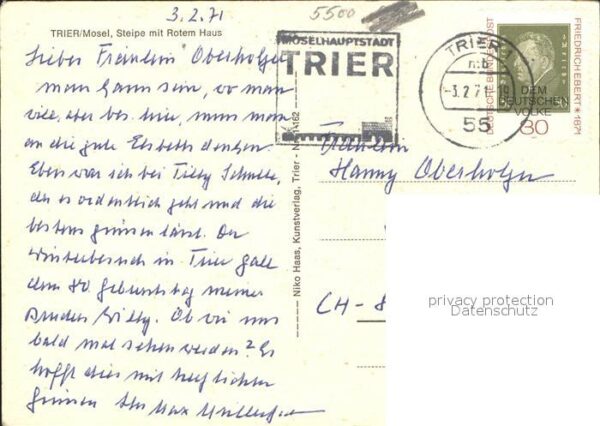 3.2.71
5500
TRIER/Mosel, Steipe mit Rotem Haus
Liebes Fräulein Oberholzer
man kann sein, wo man
will, aber bes. hier, muss man
an die gute Elsbeth denken.
Eben war ich bei Tilly
der es ordentlich geht und die
bestens grüssen lässt. Der
Winterbesuch in Trier galt
dem 80. Geburtstag meines
Bruders Willy. Ob wir uns
bald mal sehen werden? Es
hofft dies mit herzlichen
Grüssen Ihr Max
Niko Haas, Kunstverlag, Trier - Nr.
MOSELHAUPTSTADT
TRIER
TRIER 1
mb
-3.2.71
55
DEUTSCHE BUNDESPOST
DEM
DEUTSCHEN
VOLKE
30
FRIEDRICH EBERT * 1871
Fräulein
Hanny Oberholzer
CH-8
privacy protection
Datenschutz